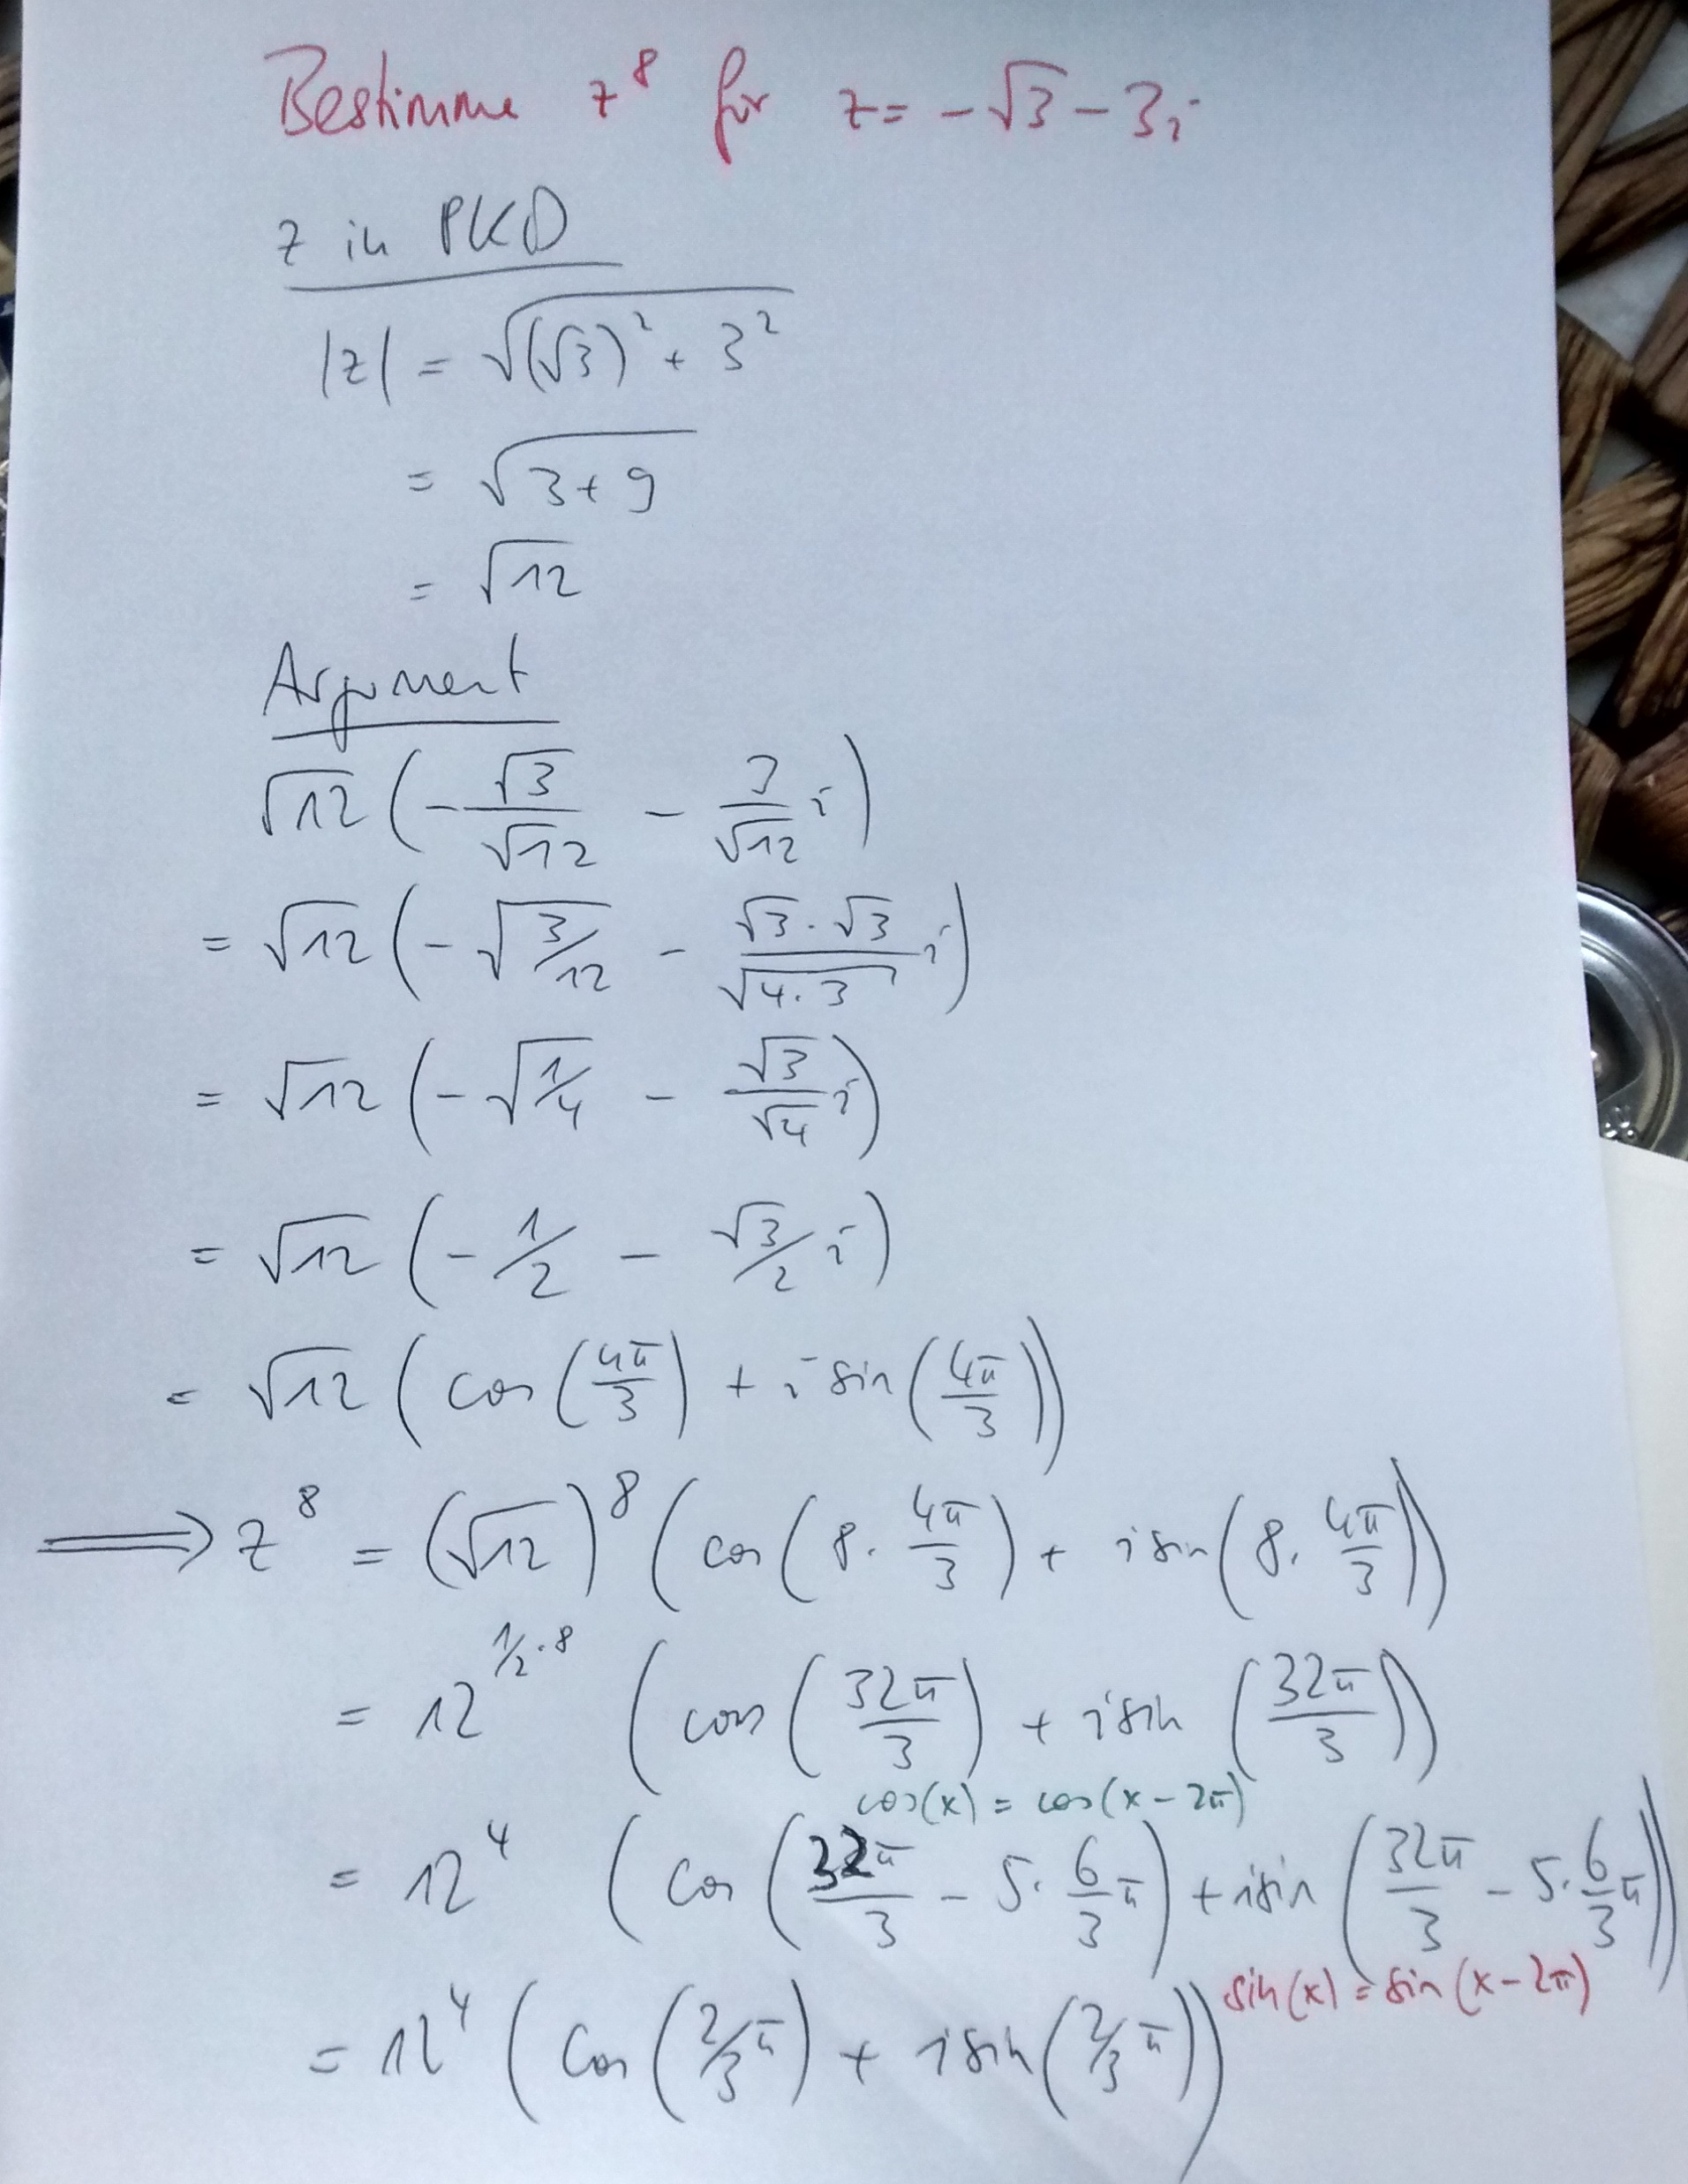 Bestimme z⁸ für z = -√3 - 3i
z in PKD
|z| = √((√3)² + 3²)
= √(3+9)
= √12
Argument
√12 (-√3/√12 - 3/√12 i)
= √12 (-√(3/12) - (√3·√3)/√(4·3) i)
= √12 (-√(1/4) - √3/√4 i)
= √12 (-1/2 - √3/2 i)
= √12 (cos(4π/3) + i sin(4π/3))
⟹ z⁸ = (√12)⁸ (cos(8·4π/3) + i sin(8·4π/3))
= 12^(1/2·8) (cos(32π/3) + i sin(32π/3))
cos(x) = cos(x-2π)
= 12⁴ (cos(32π/3 - 5·6/3 π) + i sin(32π/3 - 5·6/3 π))
sin(x) = sin(x-2π)
= 12⁴ (cos(2/3 π) + i sin(2/3 π))